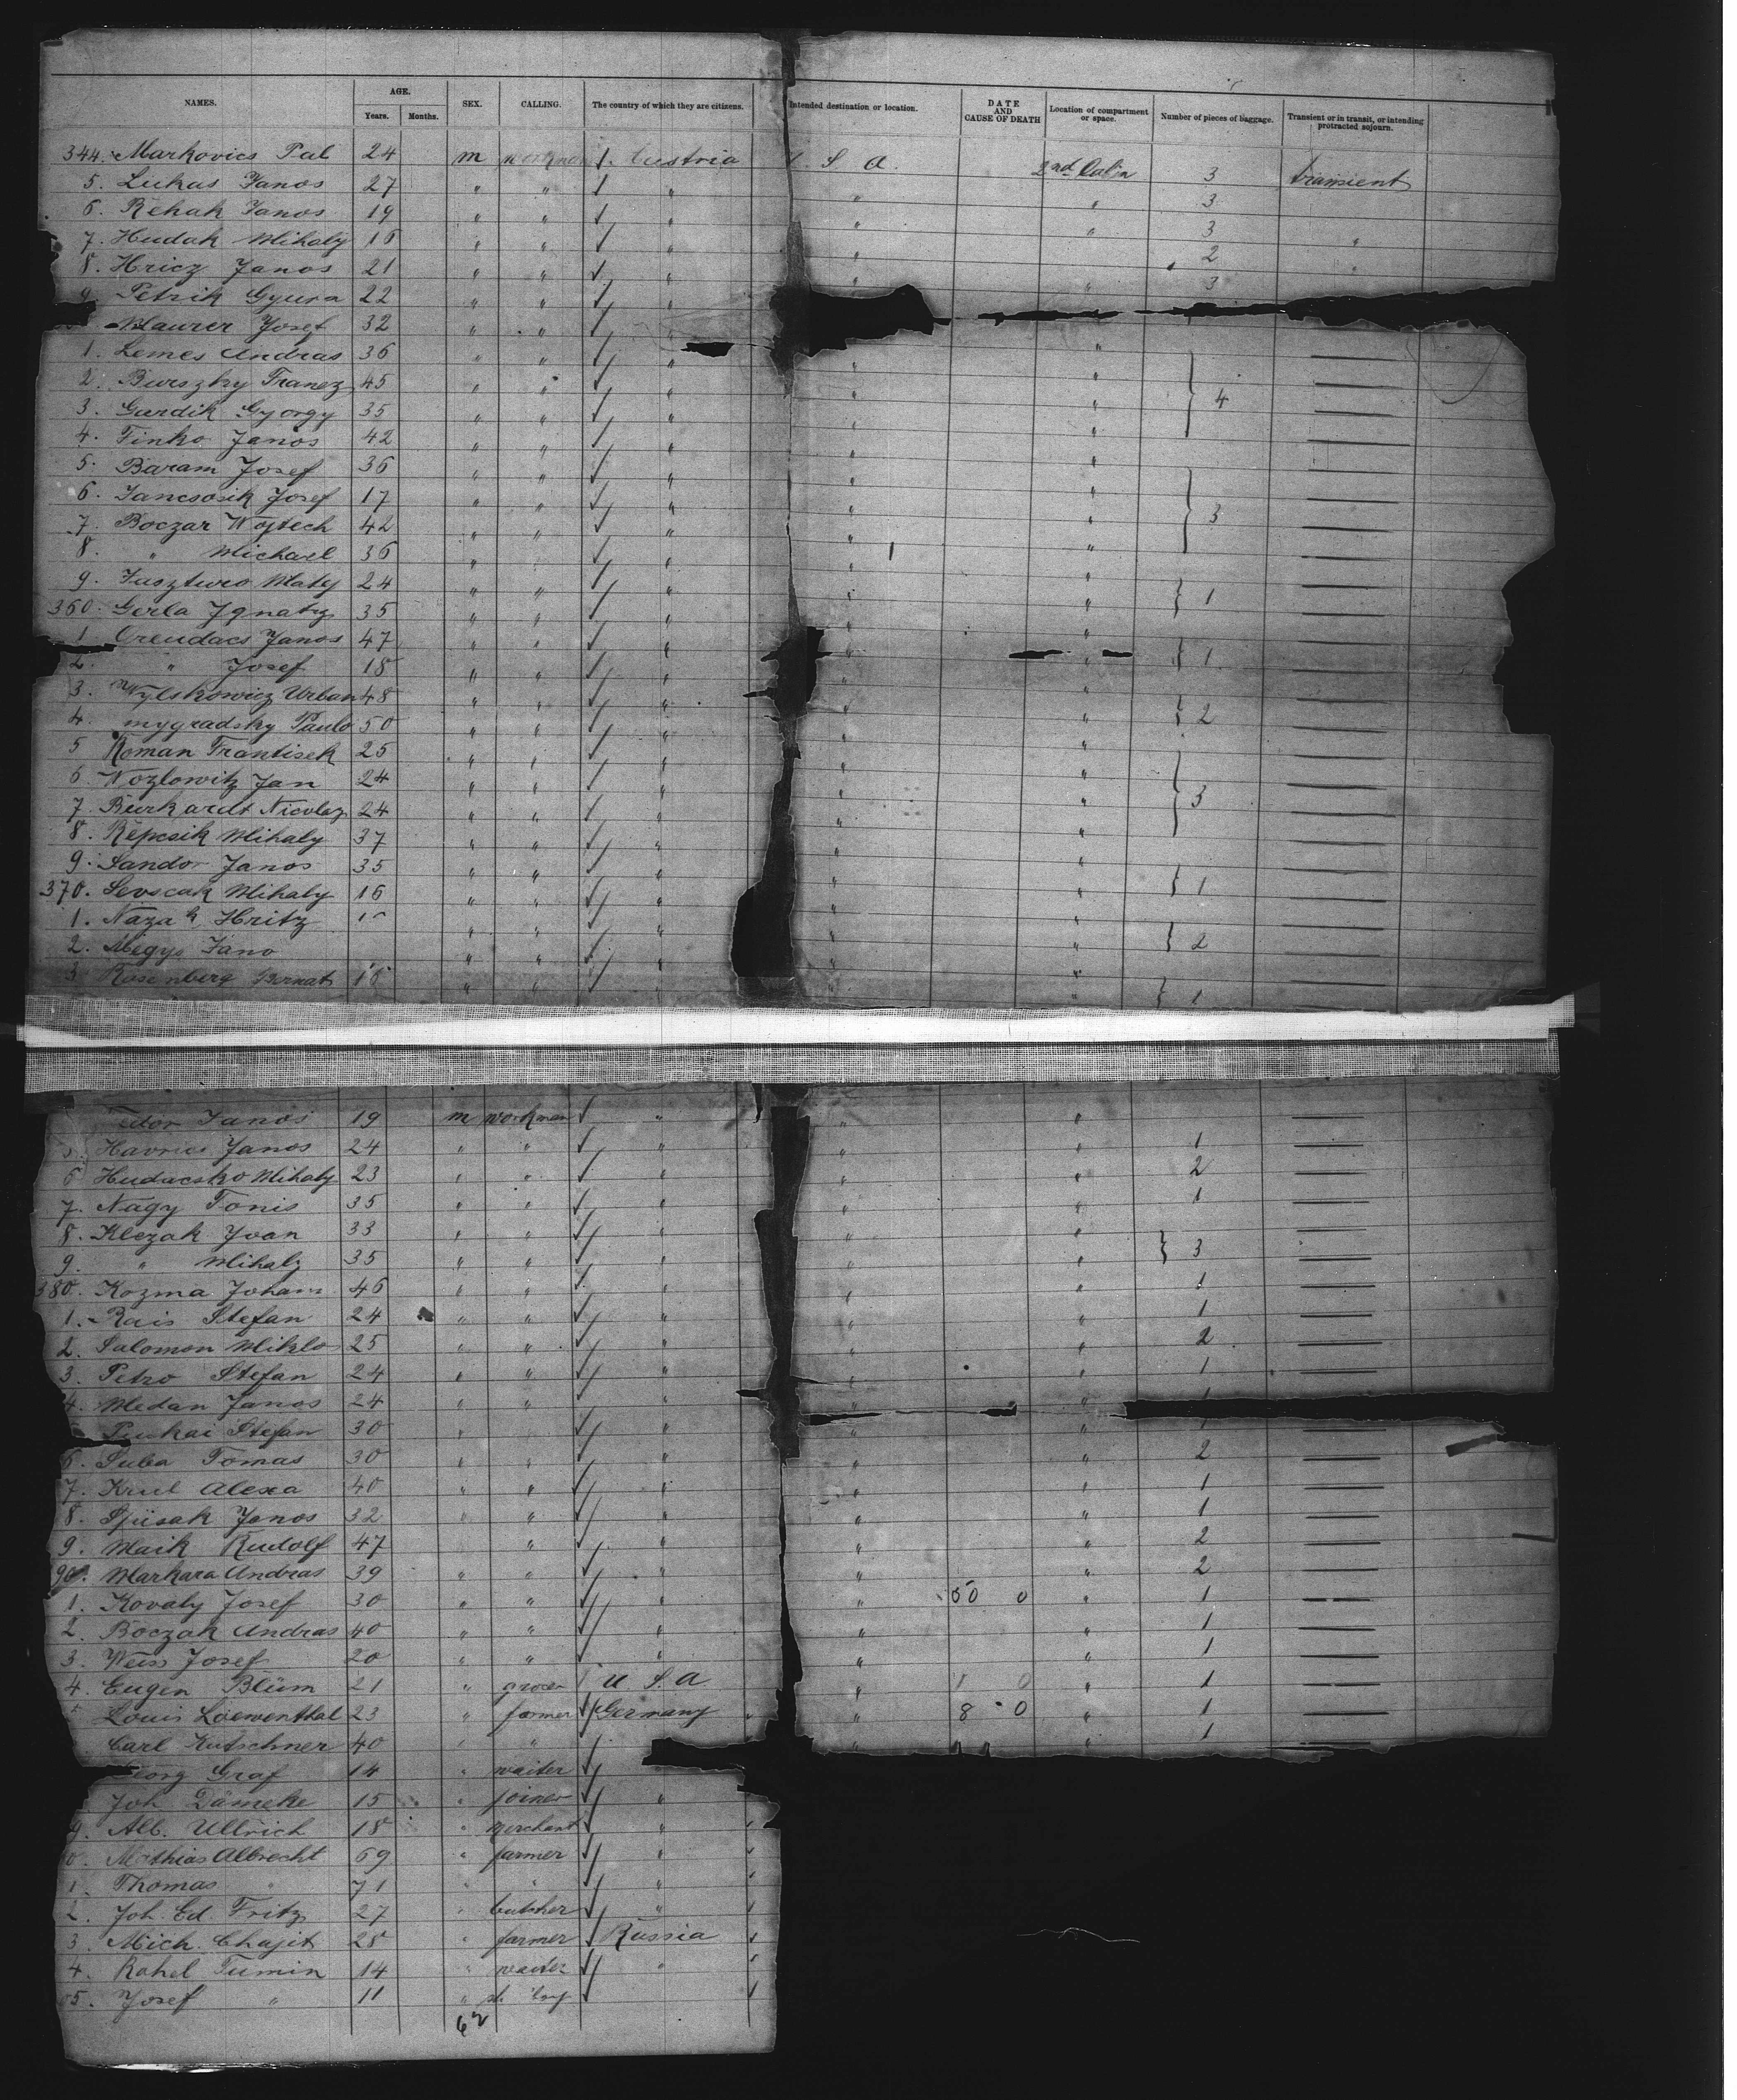 NAMES. AGE. Years. Months. SEX. CALLING. The country of which they are citizens. Intended destination or location. DATE AND CAUSE OF DEATH Location of compartment or space. Number of pieces of baggage. Transient or in transit, or intending protracted sojourn.
344. Markovics Pal 24 m workman Austria S. A. 2nd Cabin 3 transient
5. Lukas Janos 27 " " " " " 3
6. Rehak Janos 19 " " " " " 3 "
7. Hudak Mihaly 16 " " " " 2 "
8. Hricz Janos 21 " " " " " 3
9. Petrik Gyura 22 " " "
Maurer Josef 32 " " " "
1. Lemes Andras 36 " " " " "
2. Burszky Francz 45 " " " " " 4
3. Gurdik Gyorgy 35 " " " " "
4. Finko Janos 42 " " " " "
5. Baram Josef 36 " " " " "
6. Jancsosik Josef 17 " " " " "
7. Boczar Wojtech 42 " " " " " 3
8. " Michael 36 " " " " "
9. Jusztwo Maty 24 " " " " "
360. Gerla Ignatz 35 " " " " " 1
1. Orendacs Janos 47 " " " " "
2. " Josef 18 " " " " " 1
3. Wylskowicz Urban 48 " " " " "
4. mygradsky Paulo 50 " " " " " 2
5 Roman Frantisek 25 " " " " "
6. Nozlowitz Jan 24 " " " " "
7. Burkardt Nicolaz 24 " " " " " 3
8. Repcsik Mihaly 37 " " " " "
9. Sandor Janos 35 " " " " "
370. Sevscak Mihaly 16 " " " " " 1
1. Nazak Hritz " " " " "
2. Megys Jano " " " " " 2
3 Rosenberg Bernat 16 " " " " " 1
Janos 19 m workman " " "
5. Havrics Janos 24 " " " " " 1
6 Hudacsko Mihaly 23 " " " " " 2
7. Nagy Tonis 35 " " " " " 1
8. Klczak Ivan 33 " " " " "
9. " Mihaly 35 " " " " " 3
380. Kozma Johann 46 " " " " " 1
1. Rais Stefan 24 " " " " " 1
2. Salomon Miklo 25 " " " " " 2
3. Petro Stefan 24 " " " " " 1
4. Medan Janos 24 " " " " " 1
Puskai Stefan 30 " " " "
6. Suba Tomas 30 " " " " " 2
7. Krul Alexa 40 " " " " " 1
8. Spisak Janos 32 " " " " " 1
9. Maik Rudolf 47 " " " " 2
90. Markara Andras 39 " " " " " 2
1. Kovaly Josef 30 " " " " 50 0 " 1
2. Boczak Andras 40 " " " " " 1
3. Weiss Josef 20 " " " " " 1
4. Eugen Blüm 21 " grocer U. S. A. " 0 " 1
5 Louis Loewenthal 23 " farmer Germany " 8 0 " 1
Carl Kutschner 40 " " " " 1
Georg Graf 14 " waiter
Joh. Dämeke 15 " joiner "
9. Alb. Ullrich 18 " merchant "
0. Mathias Albrecht 69 " farmer "
1. Thomas " 71 " " "
2. Joh. Ed. Fritz 27 " butcher "
3. Mich. Chajit 28 " farmer Russia
4. Rahel Tumin 14 " waiter "
05. Josef " 11 "
62